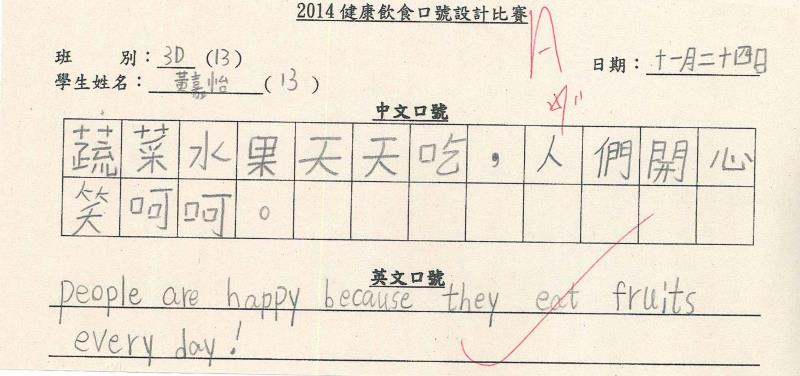 2014健康飲食口號設計比賽
A
班 別：3D (13)
日期：十一月二十四日
學生姓名：黃嘉怡 (13)
中文口號
蔬菜水果天天吃，人們開心
笑呵呵。
英文口號
people are happy because they eat fruits
every day!